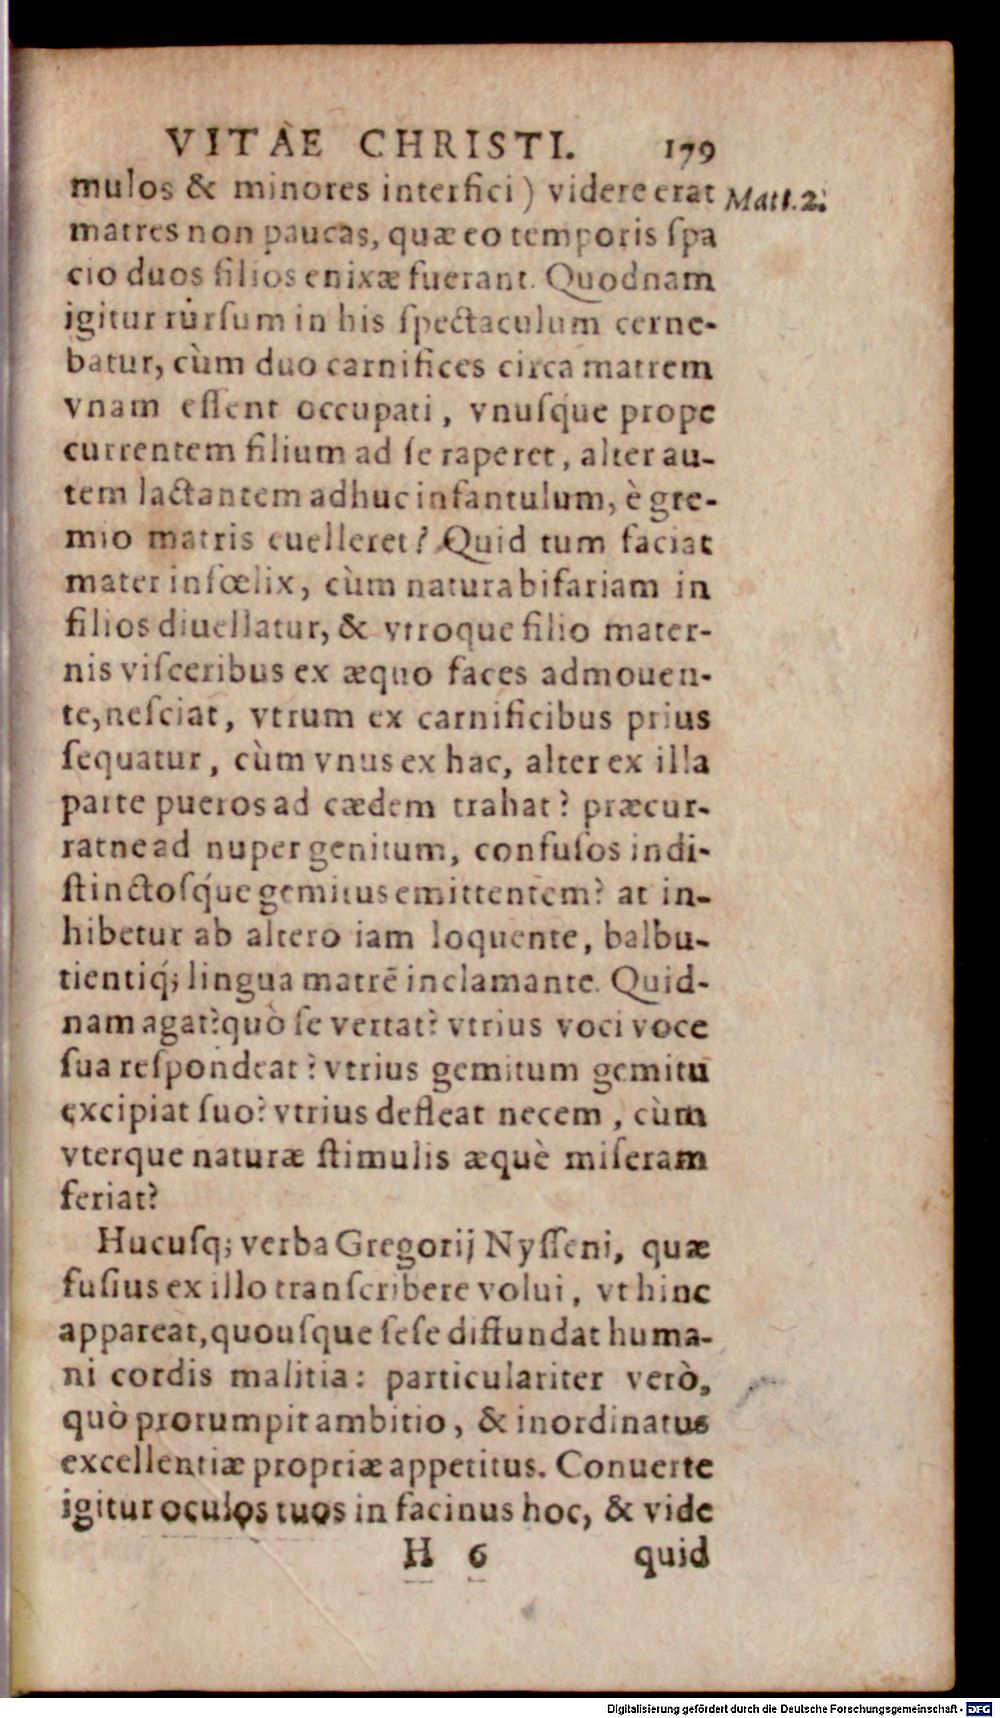 VITAE CHRISTI. 179
mulos & minores interfici) videre erat Matt. 2.
matres non paucas, quæ eo temporis ſpa
cio duos filios enixæ fuerant. Quodnam
igitur rurſum in his ſpectaculum cerne-
batur, cùm duo carnifices circa matrem
vnam eſſent occupati, vnuſq́ue prope
currentem filium ad ſe raperet, alter au-
tem lactantem adhuc infantulum, è gre-
mio matris euelleret? Quid tum faciat
mater infœlix, cùm natura bifariam in
filios diuellatur, & vtroque filio mater-
nis viſceribus ex æquo faces admouen-
te, neſciat, vtrum ex carnificibus prius
ſequatur, cùm vnus ex hac, alter ex illa
parte pueros ad cædem trahat? præcur-
ratne ad nuper genitum, confuſos indi-
ſtinctoſq́ue gemitus emittentem? at in-
hibetur ab altero iam loquente, balbu-
tientiq́; lingua matrē inclamante. Quid-
nam agat? quò ſe vertat? vtrius voci voce
ſua reſpondeat? vtrius gemitum gemitu
excipiat ſuo? vtrius defleat necem, cùm
vterque naturæ ſtimulis æquè miſeram
feriat?
Hucuſq; verba Gregorij Nyſſeni, quæ
fuſius ex illo tranſcribere volui, vt hinc
appareat, quouſque ſeſe diffundat huma-
ni cordis malitia: particulariter verò,
quò prorumpit ambitio, & inordinatus
excellentiæ propriæ appetitus. Conuerte
igitur oculos tuos in facinus hoc, & vide
H 6 quid
Digitalisierung gefördert durch die Deutsche Forschungsgemeinschaft - DFG